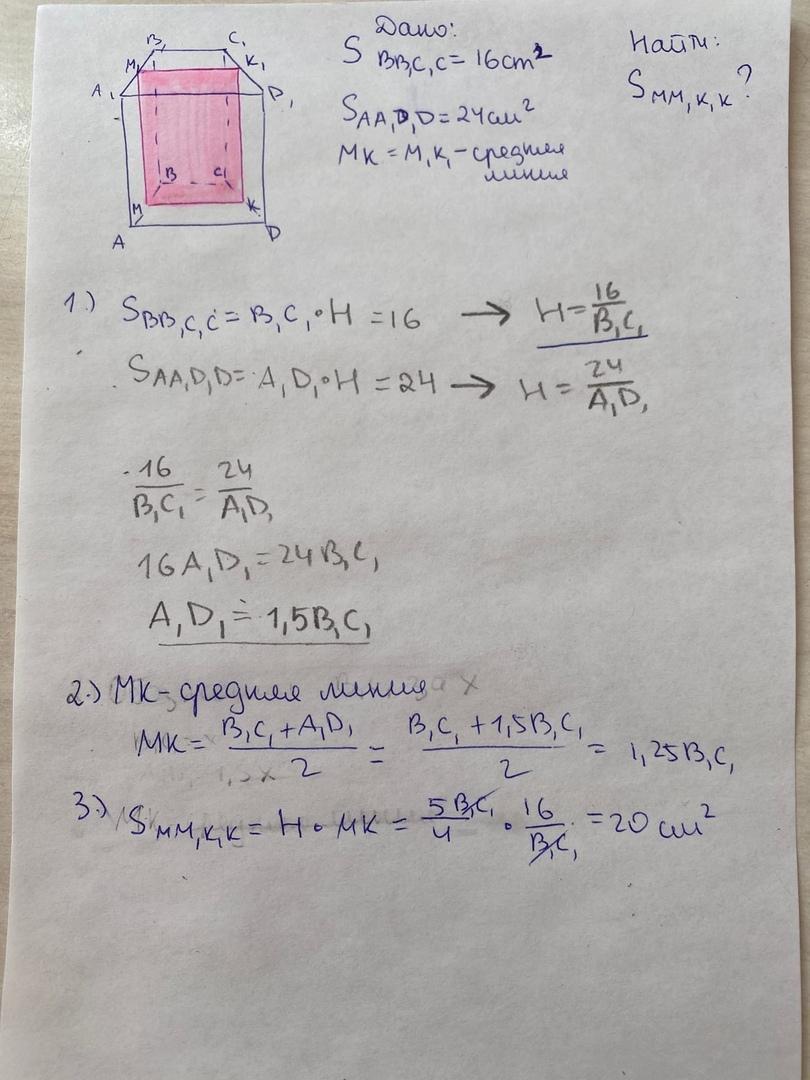 Дано:
S BB₁C₁C = 16cm²
Найти:
S MM₁K₁K ?
S AA₁D₁D = 24 см²
MK = M₁K₁ - средняя
линия
B₁ C₁
M₁ K₁
A₁ D₁
B C
M K
A D
1.) S BB₁C₁C = B₁C₁ • H = 16 → H = 16/B₁C₁
S AA₁D₁D = A₁D₁ • H = 24 → H = 24/A₁D₁
16/B₁C₁ = 24/A₁D₁
16A₁D₁ = 24B₁C₁
A₁D₁ = 1,5B₁C₁
2.) MK - средняя линия
MK = (B₁C₁ + A₁D₁)/2 = (B₁C₁ + 1,5B₁C₁)/2 = 1,25B₁C₁
3.) S MM₁K₁K = H • MK = 5B₁C₁/4 • 16/B₁C₁ = 20 см²